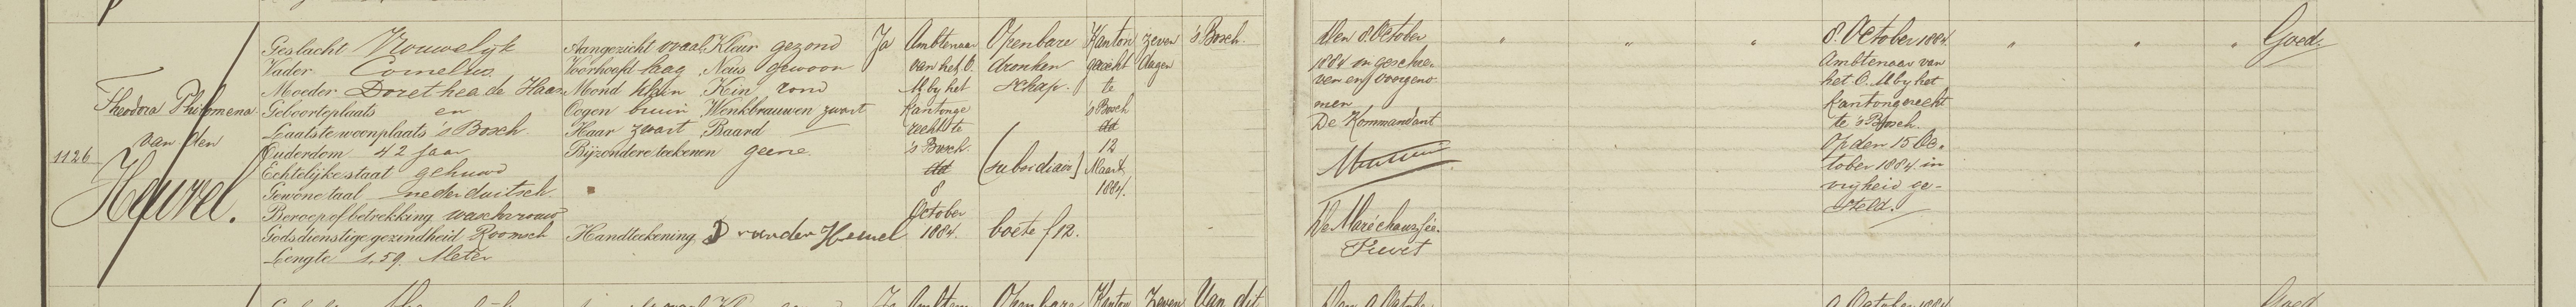 1126
Theodora Philomena
van den
Heuvel.
Geslacht Vrouwelijk
Vader Cornelius
Moeder Dorethea de Haan
Geboorteplaats en
Laatste woonplaats 's Bosch
Ouderdom 42 jaar
Echtelijke staat gehuwd
Gewone taal nederduitsch
Beroep of betrekking waschvrouw
Godsdienstige gezindheid Roomsch
Lengte 1.59. Meter
Aangezicht ovaal, Kleur gezond
Voorhoofd laag, Neus gewoon
Mond klein, Kin rond
Oogen bruin, Wenkbrauwen zwart
Haar zwart, Baard —
Bijzondere teekenen geene.
Handteekening D van den Heuvel
Ja
Ambtenaar
van het O.
M by het
Kantonge
recht te
's Bosch.
dd
8
October
1884.
Openbare
dronken
schap.
(subsidiair)
boete f 12.
Kanton
gerecht
te
's Bosch
dd
12
Maart
1884.
zeven
dagen
's Bosch.
Den 8 October
1884 in geschre
ven en overgeno
men
De Kommandant
De Maréchaussée.
8. October 1884.
Ambtenaar van
het O. M by het
Kantongerecht
te 's Bosch.
Op den 15 Oc-
tober 1884 in
vrijheid ge-
steld.
Goed.
Ja
Ambten
Openbare
Kanton
Zeven
Van dit
Den 9 Octobe
9 October 1884
Goed